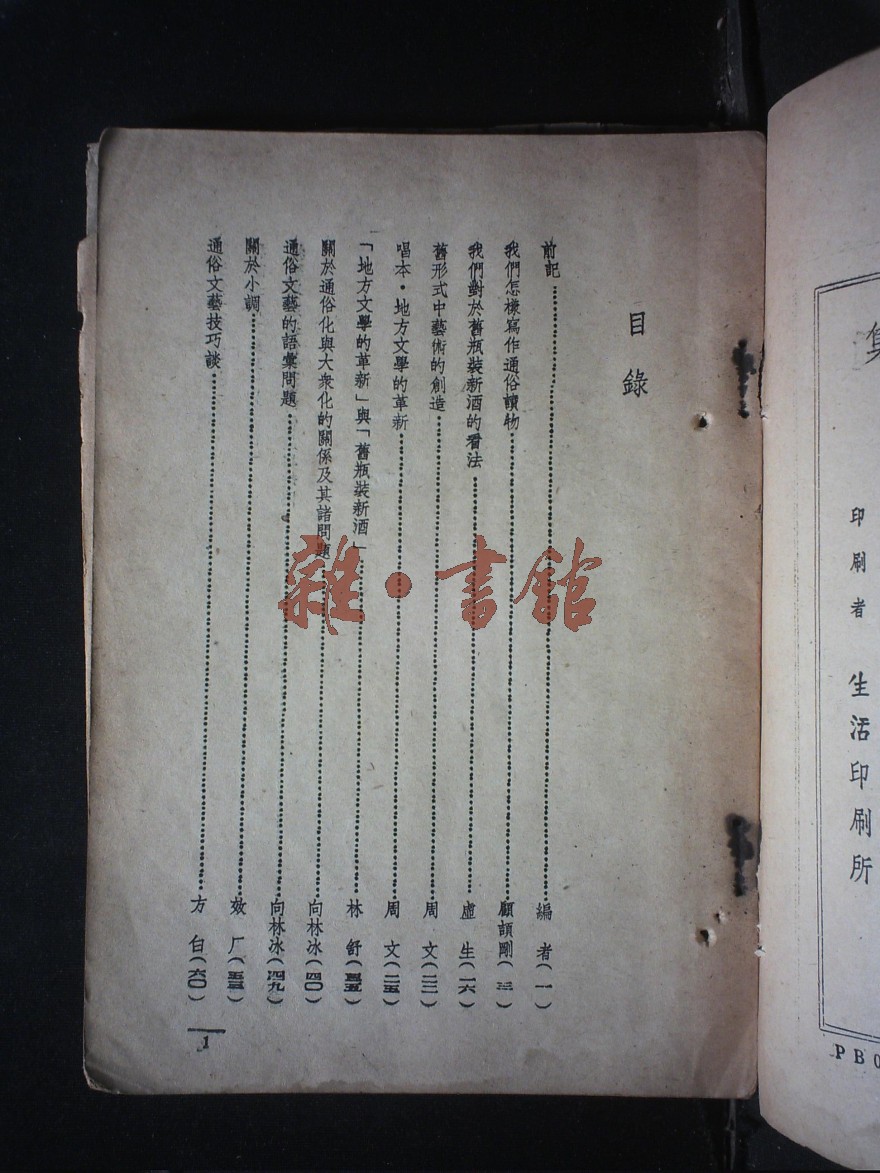 集
印刷者 生活印刷所
PB0
目錄
前記 編者(一)
我們怎樣寫作通俗讀物 顧頡剛(三)
我們對於舊瓶裝新酒的看法 虛生(一六)
舊形式中藝術的創造 周文(二二)
唱本·地方文學的革新 周文(二五)
「地方文學的革新」與「舊瓶裝新酒」 林舒(三五)
關於通俗化與大衆化的關係及其諸問題 向林冰(四〇)
通俗文藝的語彙問題 向林冰(四九)
關於小調 效厂(五三)
通俗文藝技巧談 方白(六〇)
1
雜·書館